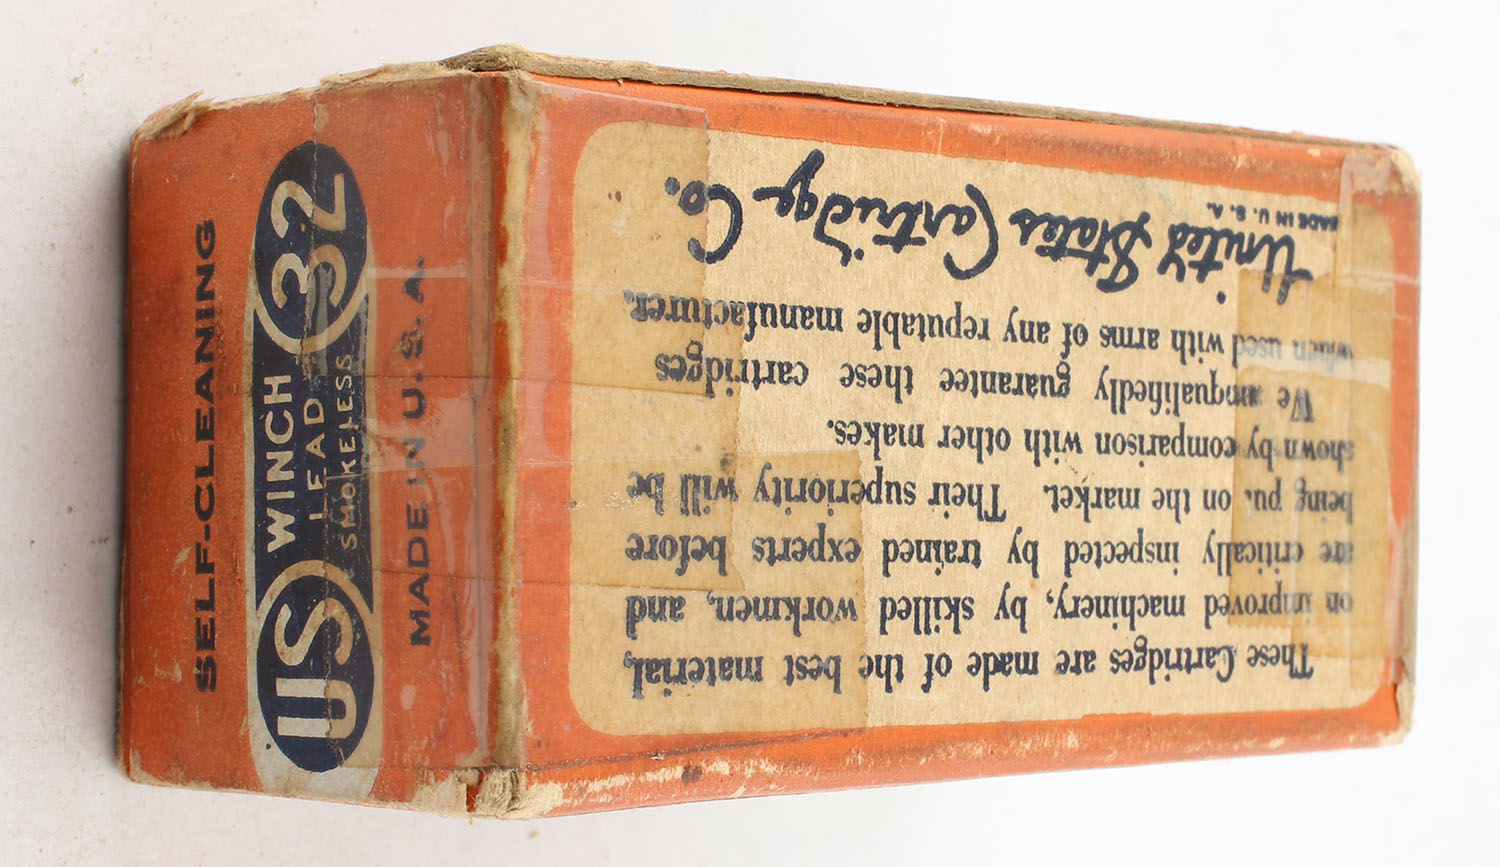 SELF-CLEANING
US WINCH 32
LEAD
SMOKELESS
MADE IN U.S.A.
These Cartridges are made of the best material,
on improved machinery, by skilled workmen, and
are critically inspected by trained experts before
being put on the market. Their superiority will be
shown by comparison with other makes.
We unqualifiedly guarantee these cartridges
when used with arms of any reputable manufacturer.
United States Cartridge Co.
MADE IN U.S.A.